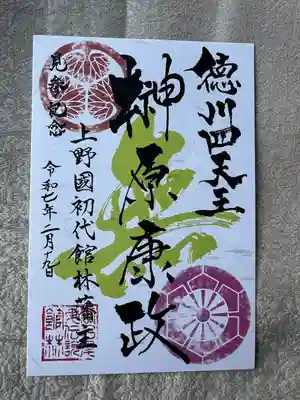 徳川四天王
榊原康政
上野國初代館林藩主
見参記念
令和七年二月十九日